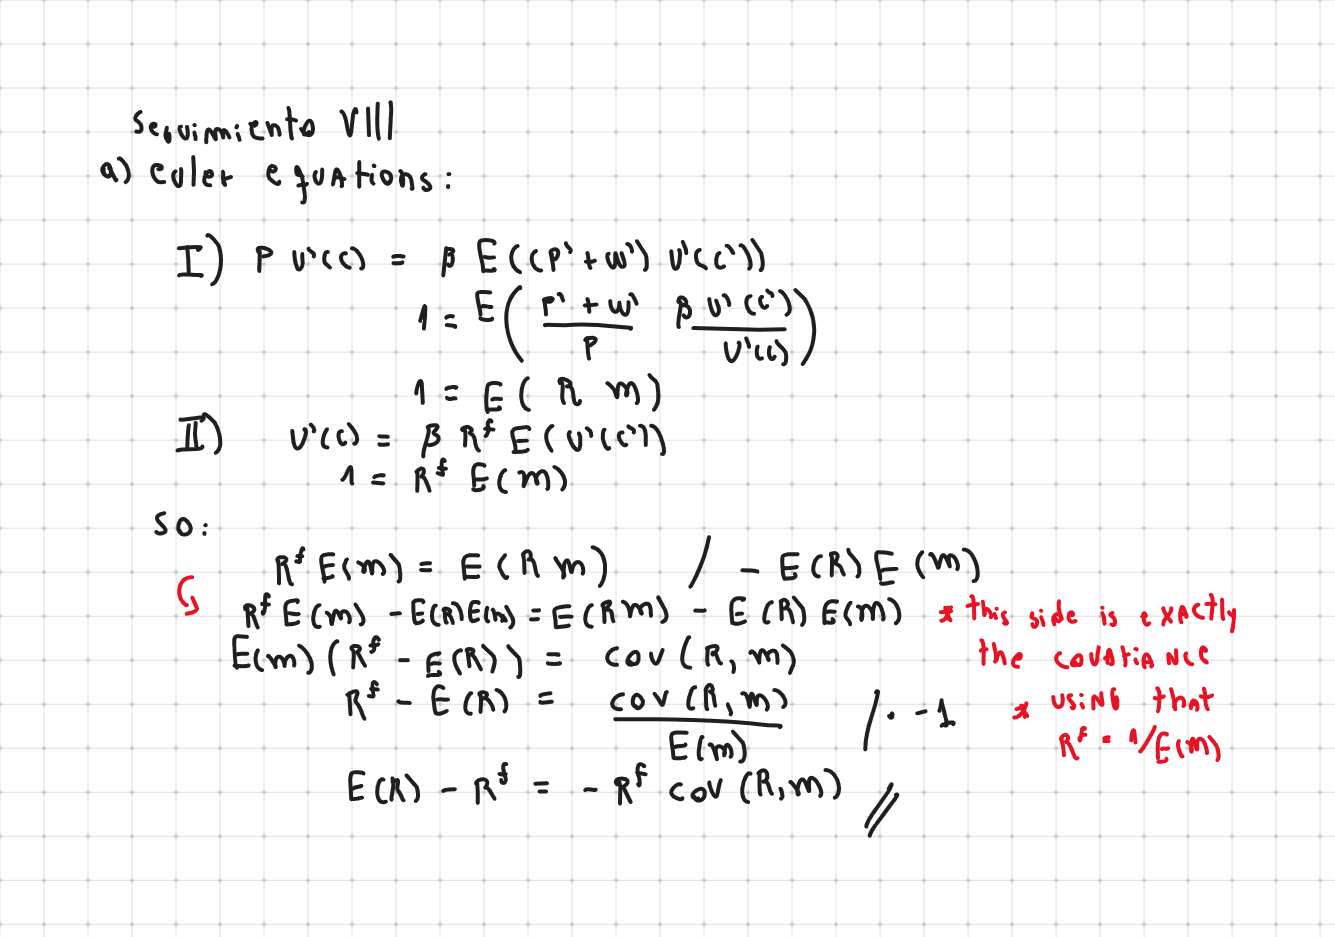 Seguimiento VIII
a) euler equations:
I) P u'(c) = β E((P'+w') u'(c'))
1 = E( (P'+w')/P  β u'(c')/u'(c) )
1 = E( R m)
II) u'(c) = β R^f E(u'(c'))
1 = R^f E(m)
so:
R^f E(m) = E(R m) / - E(R) E(m)
R^f E(m) - E(R)E(m) = E(Rm) - E(R) E(m) * this side is exactly
E(m) (R^f - E(R)) = cov(R,m) the covariance
R^f - E(R) = cov(R,m)/E(m) / · -1 * using that
R^f = 1/E(m)
E(R) - R^f = - R^f cov(R,m) //